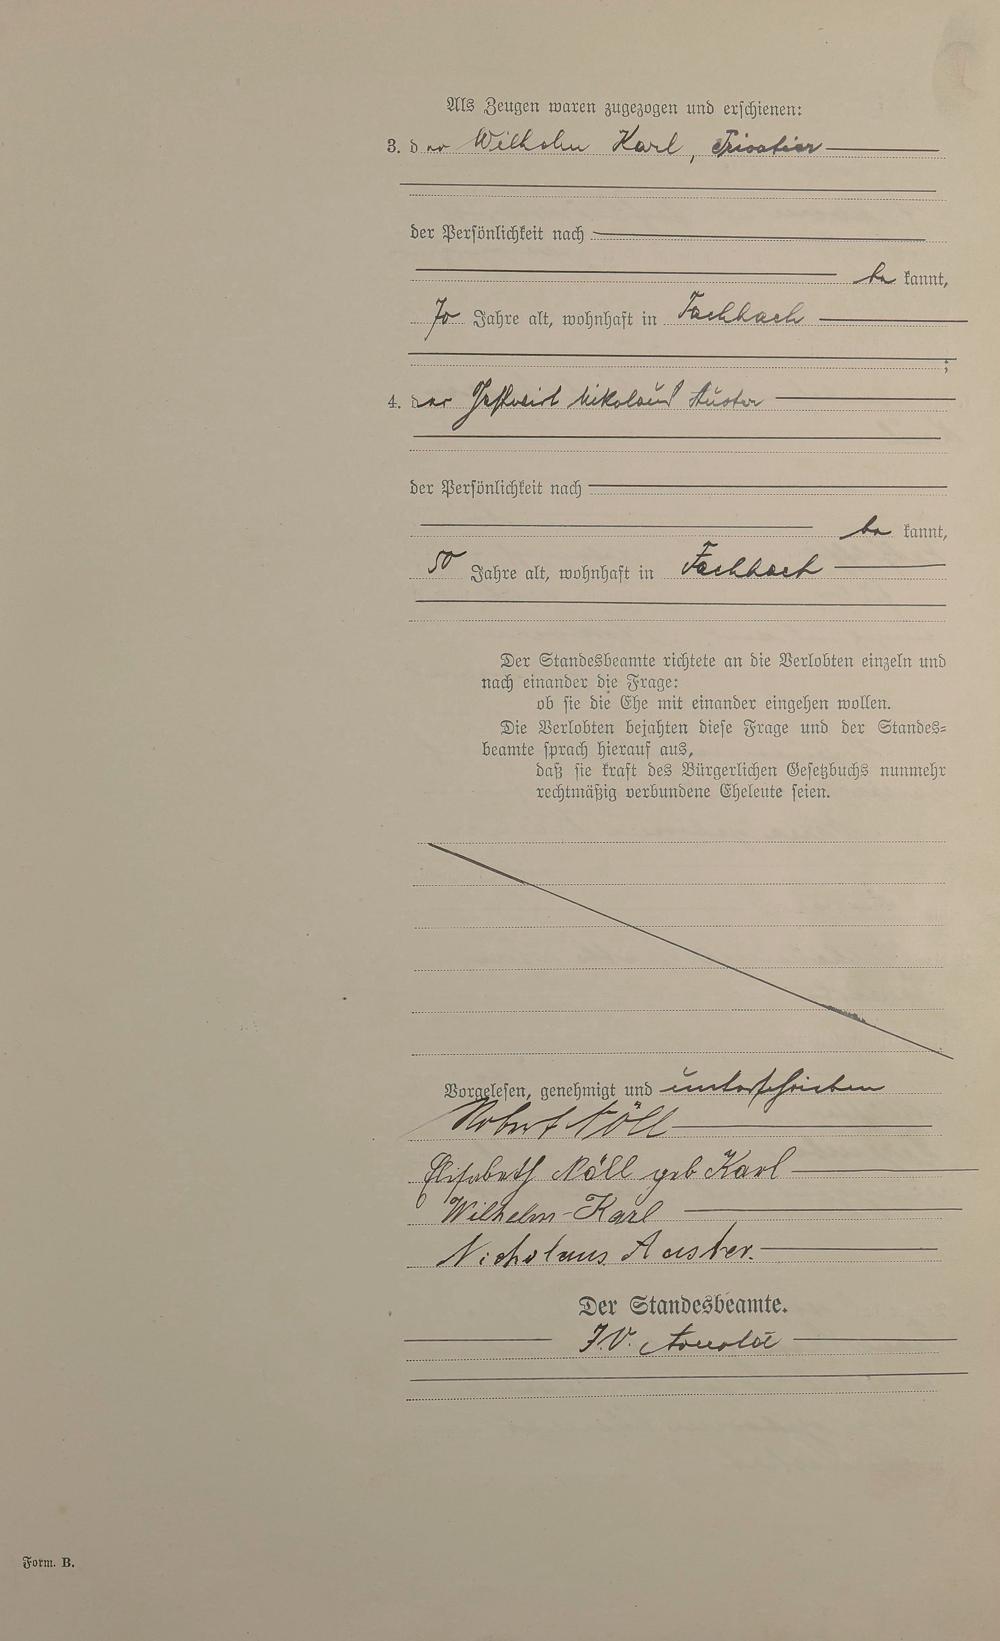 Als Zeugen waren zugezogen und erschienen:
3. der Wilhelm Karl, Privatier
der Persönlichkeit nach
be kannt,
70 Jahre alt, wohnhaft in Fachbach
;
4. der Gastwirt Nikolaus Auster
der Persönlichkeit nach
be kannt,
50 Jahre alt, wohnhaft in Fachbach
Der Standesbeamte richtete an die Verlobten einzeln und
nach einander die Frage:
ob sie die Ehe mit einander eingehen wollen.
Die Verlobten bejahten diese Frage und der Standes=
beamte sprach hierauf aus,
daß sie kraft des Bürgerlichen Gesetzbuchs nunmehr
rechtmäßig verbundene Eheleute seien.
Vorgelesen, genehmigt und unterschrieben
Robert Nöll
Elisabeth Nöll geb Karl
Wilhelm Karl
Nicholaus Auster.
Der Standesbeamte.
J.V. Arnold
Form. B.